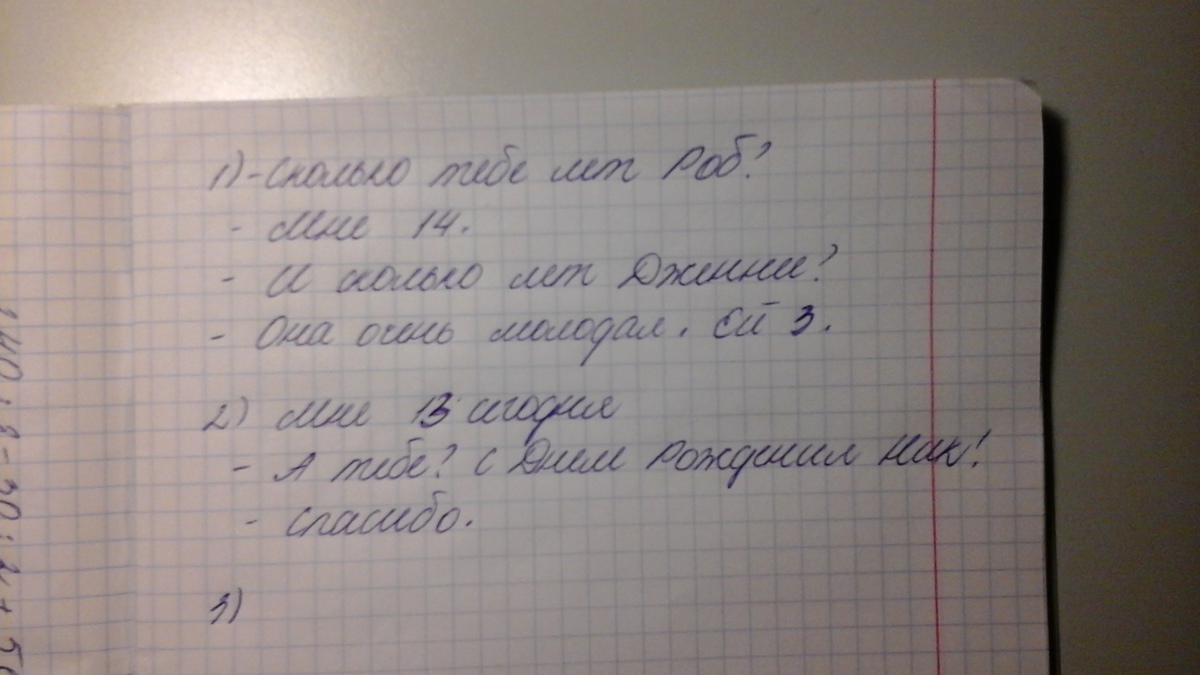 1) - Сколько тебе лет Роб?
- Мне 14.
- И сколько лет Дженни?
- Она очень молодая. Ей 3.
2) Мне 13 сегодня
- А тебе? С Днем Рождения Ник!
- Спасибо.
3)